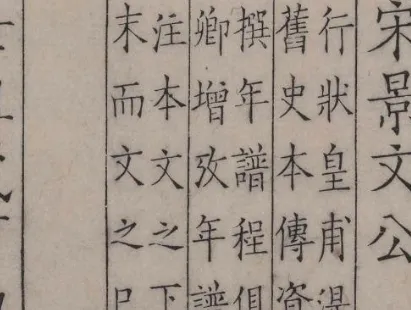 宋景文公
行狀皇甫湜
舊史本傳資
撰年譜程俱
卿增攷年譜
注本文之下
末而文之